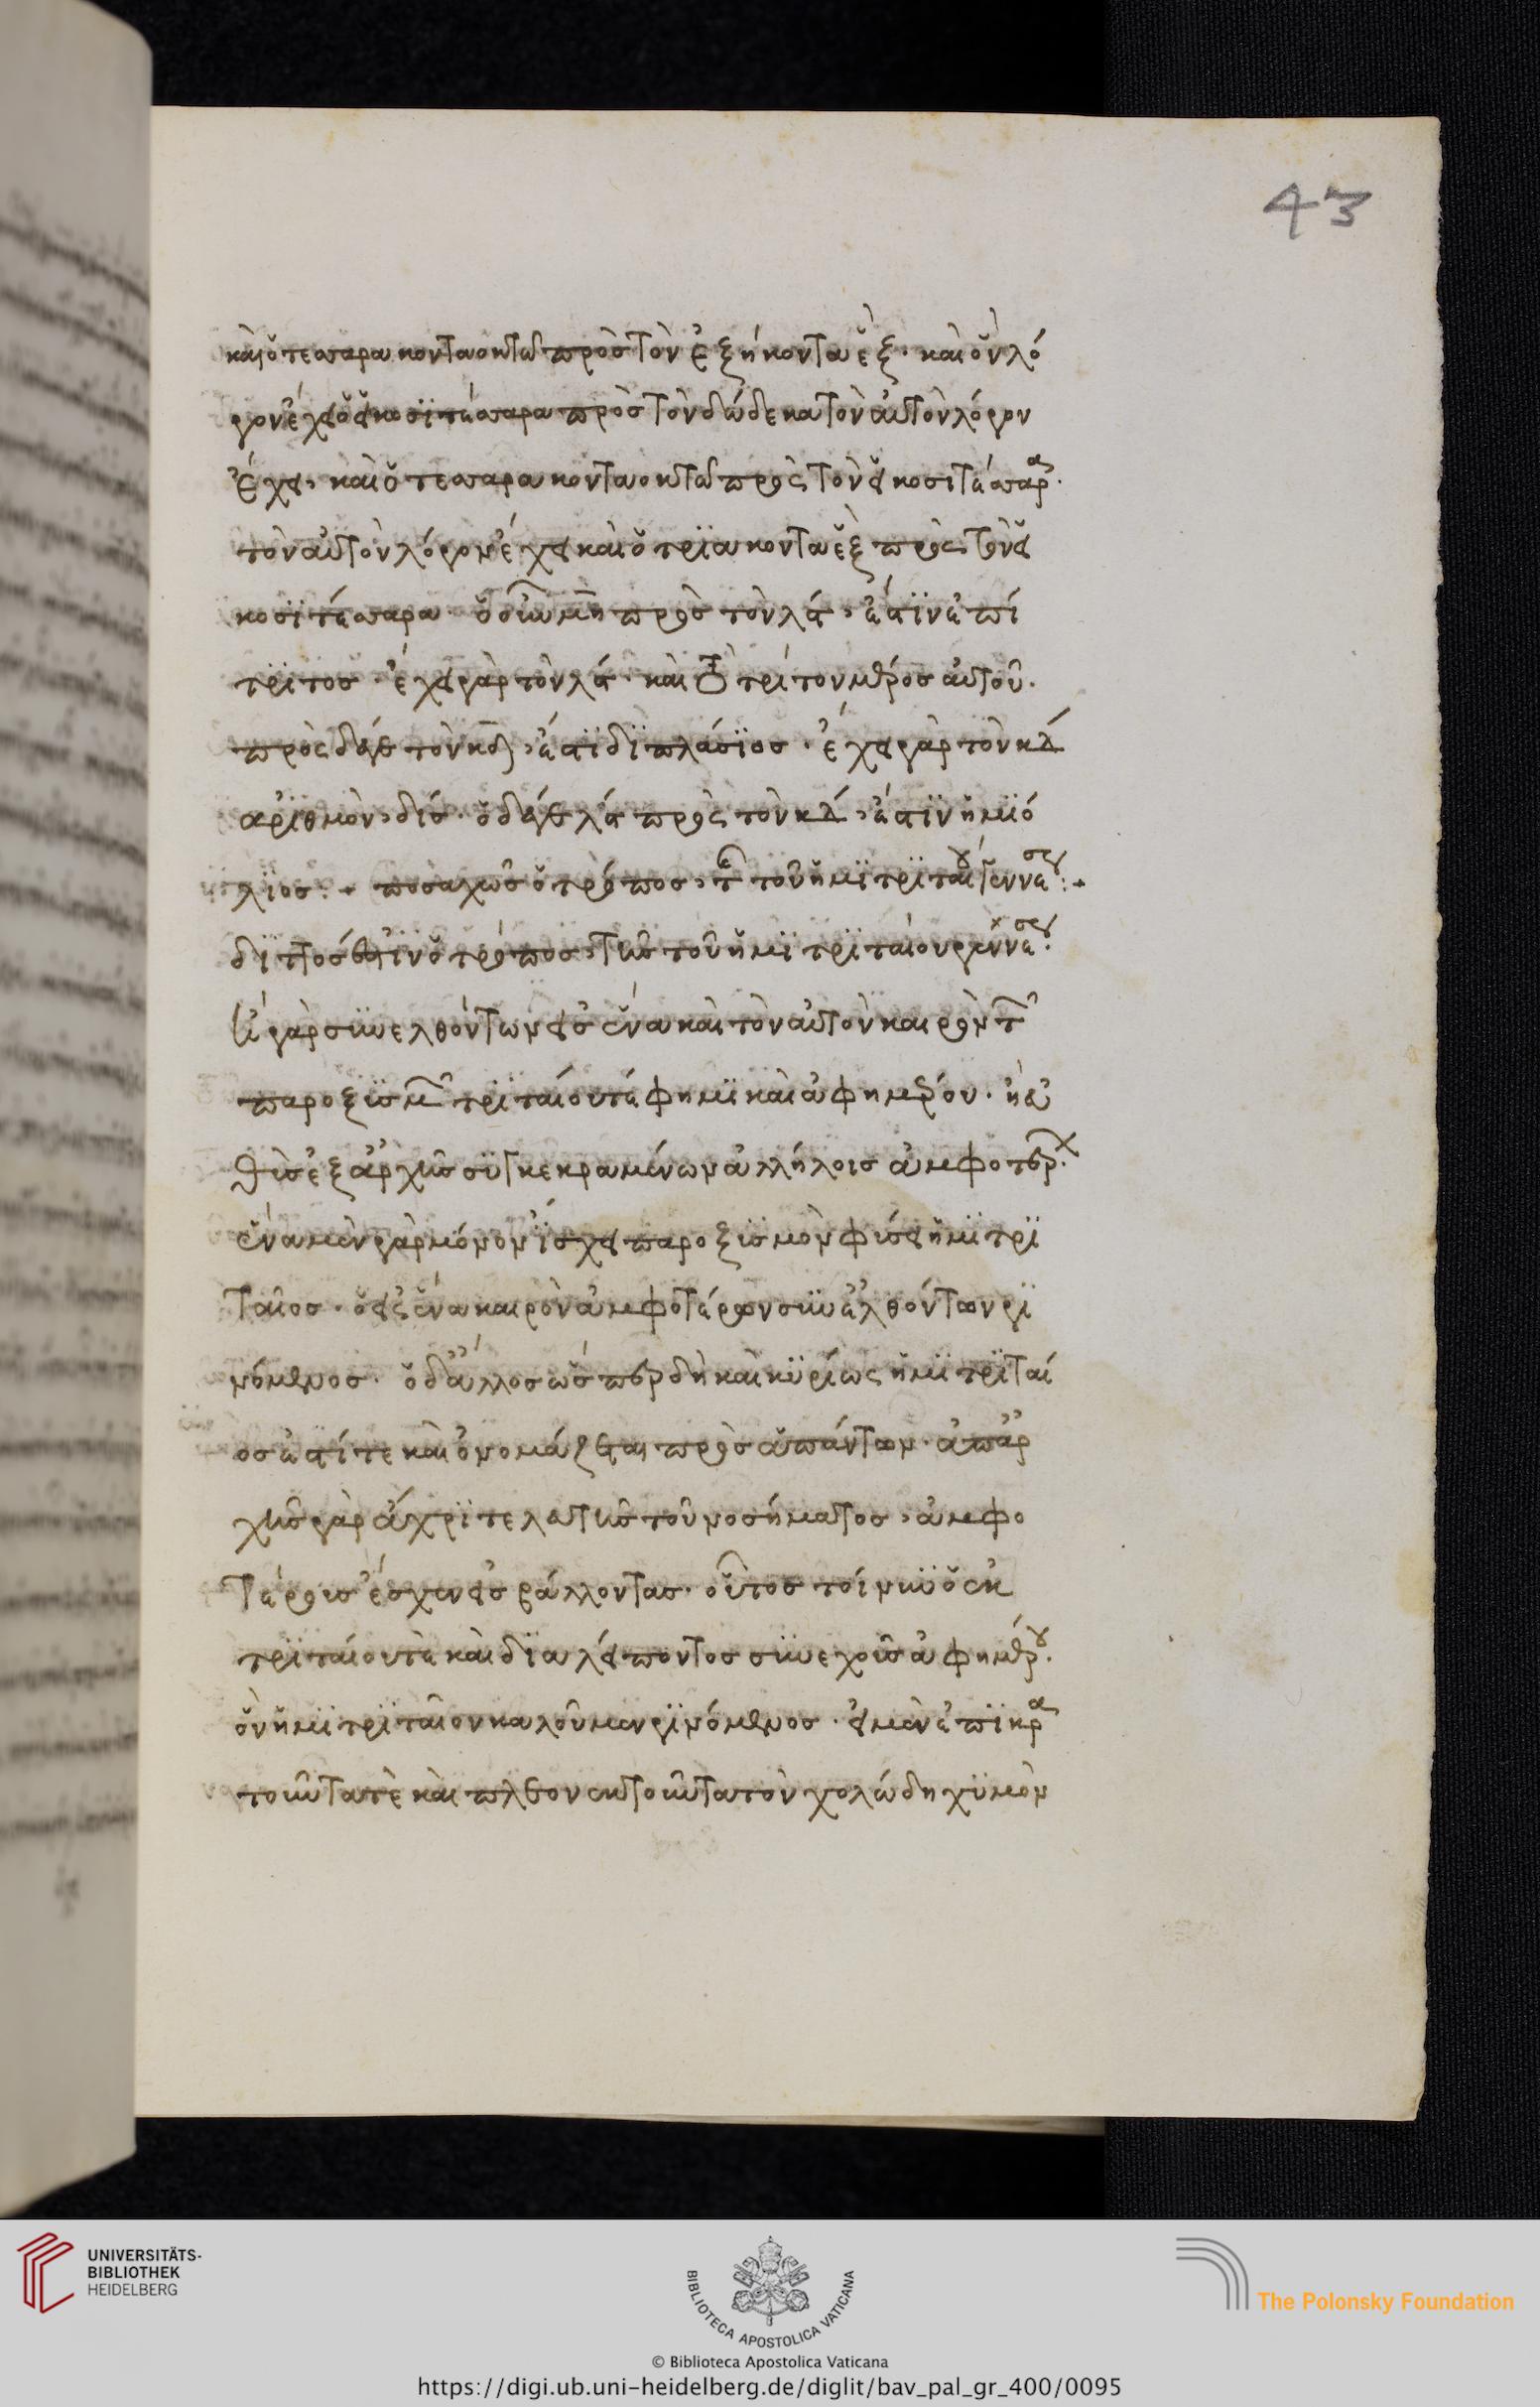 43
καὶ ὁ τεσσαρακονταοκτὼ πρὸς τὸν ἑξήκοντα ἕξ· καὶ ὃν λό
γον ἔχει ὁ εἰκοσϊτέσσαρα πρὸς τὸν δώδεκα τὸν αὐτὸν λόγον
ἔχει, καὶ ὁ τεσσαρακονταοκτὼ πρὸς τὸν εἰκοσιτέσσαρα·
τὸν αὐτὸν λόγον ἔχει καὶ ὁ τρϊακονταὲξ πρὸς τὸν εἰ
κοσϊτέσσαρα· μη πρὸς τὸν λϛ, ἐστὶν ἐπί
τρϊτος· ἔχει γὰρ τὸν λϛ· καὶ τὸ τρίτον μέρος αὐτοῦ·
πρὸς δέ γε τὸν κδ, ἐστὶ δϊπλάσϊος· ἔχει γὰρ τὸν κδ
ἀρϊθμὸν, δίς· ὁ δέ γε λϛ πρὸς τὸν κδ, ἐστὶν ἡμϊό
λϊος:+ ποσαχῶς ὁ τρόπος, τῆς τοῦ ἡμϊτρϊταίου γεννέσεως:+
δϊττός ἐστϊν ὁ τρόπος, τῆς τοῦ ἡμϊτρϊταίου γεννέσεως·
ἢ γὰρ συνελθόντων εἰς ἕνα καὶ τὸν αὐτὸν καιρὸν τῶν
παροξϋσμῶν τρϊταίου τέ φημϊ καὶ ἀφημερϊνοῦ· ἢ εὐ
θὺς ἐξ ἀρχῆς σϋγκεκραμένων ἀλλήλοις ἀμφοτέρων·
ἕνα μὲν γὰρ μόνον ἴσχει παροξϋσμὸν φύσει ἡμϊτρϊ
ταῖος· ὁ εἰς ἕνα καιρὸν ἀμφοτέρων συνελθόντων γϊ
νόμενος· ὁ δ' ἄλλος ὥσπερ δὴ καὶ κϋρίως ἡμϊτρϊταί
ος ἐστί τε καὶ ὀνομάζεται πρὸς ἁπάντων· ἀπ' ἀρ
χῆς γὰρ ἄχρϊ τελευτῆς τοῦ νοσήματος, ἀμφο
τέρους ἔσχεν εἰσβάλλοντας· οὗτος τοίνυν ὁ ἐκ
τρϊταίου τὲ καὶ δϊαλείποντος συνεχοῦς ἀφημερϊνοῦ·
ὃν ἡμϊτρϊταῖον καλοῦμεν γϊνόμενος· εἰ μὲν ἐπϊκρα
τοῦντα τὲ καὶ πλέον ἐκτοῦντα τὸν χολώδη χϋμὸν
UNIVERSITÄTS-
BIBLIOTHEK
HEIDELBERG
BIBLIOTECA APOSTOLICA VATICANA
The Polonsky Foundation
© Biblioteca Apostolica Vaticana
https://digi.ub.uni-heidelberg.de/diglit/bav_pal_gr_400/0095